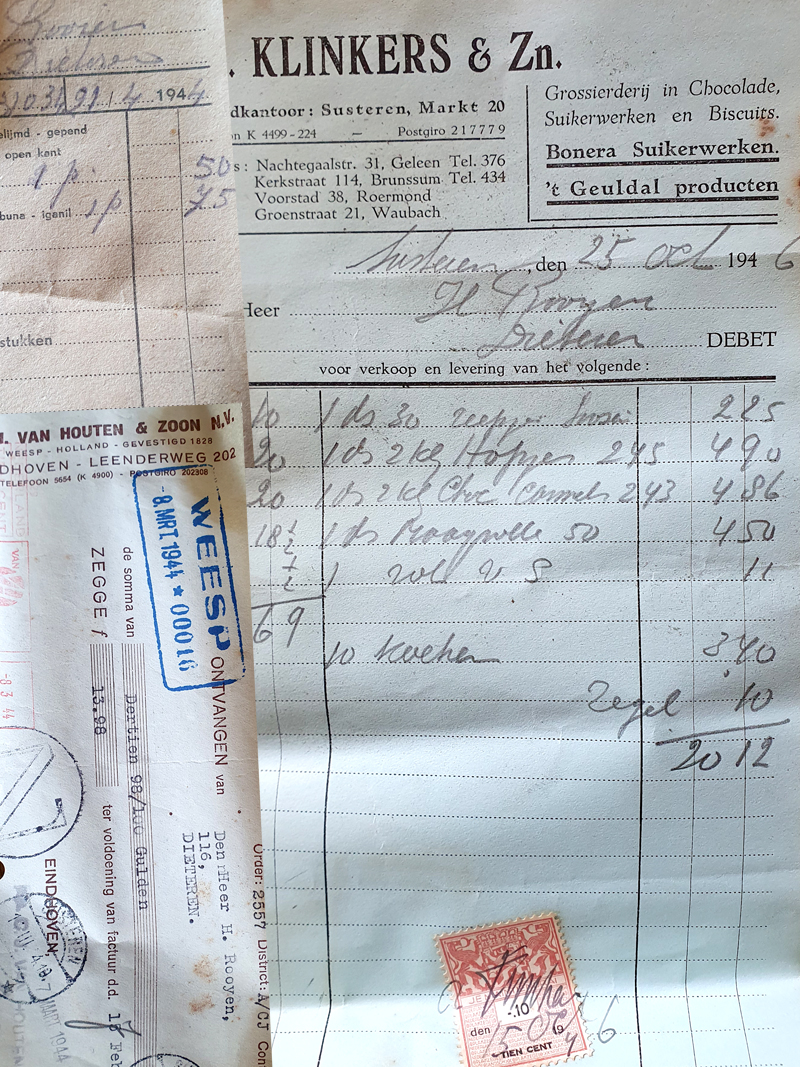 Rooijen
Dieteren
194 4
elijmd - gepend
open kant
1 p. 50
buna - igenil 1 p 75
stukken
. KLINKERS & Zn.
dkantoor: Susteren, Markt 20
on K 4499-224 — Postgiro 217779
s: Nachtegaalstr. 31, Geleen Tel. 376
Kerkstraat 114, Brunssum Tel. 434
Voorstad 38, Roermond
Groenstraat 21, Waubach
Grossierderij in Chocolade,
Suikerwerken en Biscuits.
Bonera Suikerwerken.
't Geuldal producten
Susteren, den 25 Oct 1946
Heer H Rooyen
Dieteren DEBET
voor verkoop en levering van het volgende:
10 1 ds 30 2 25
20 1 ds 2 kg Hopjes 245 4 90
20 1 ds 2 kg Choc Carmels 243 4 86
18 1/2 1 ds 50 4 50
1/2 1 rol v S 11
69
10 koeken 3 40
Zegel 10
20 12
. VAN HOUTEN & ZOON N.V.
WEESP - HOLLAND - GEVESTIGD 1828
DHOVEN - LEENDERWEG 202
TELEFOON 5654 (K 4900) - POSTGIRO 202308
WEESP
-8. MRT. 1944 * 00016
ONTVANGEN van
Den Heer H. Rooyen,
116,
DIETEREN.
de somma van Dertien 98/100 Gulden
ZEGGE f 13.98 ter voldoening van factuur d.d. 17 Feb
EINDHOVEN,
MAART 1944
-8.3.44
Order: 2557 District: A/CJ Con
-.10
den 15 Oct 1946
TIEN CENT